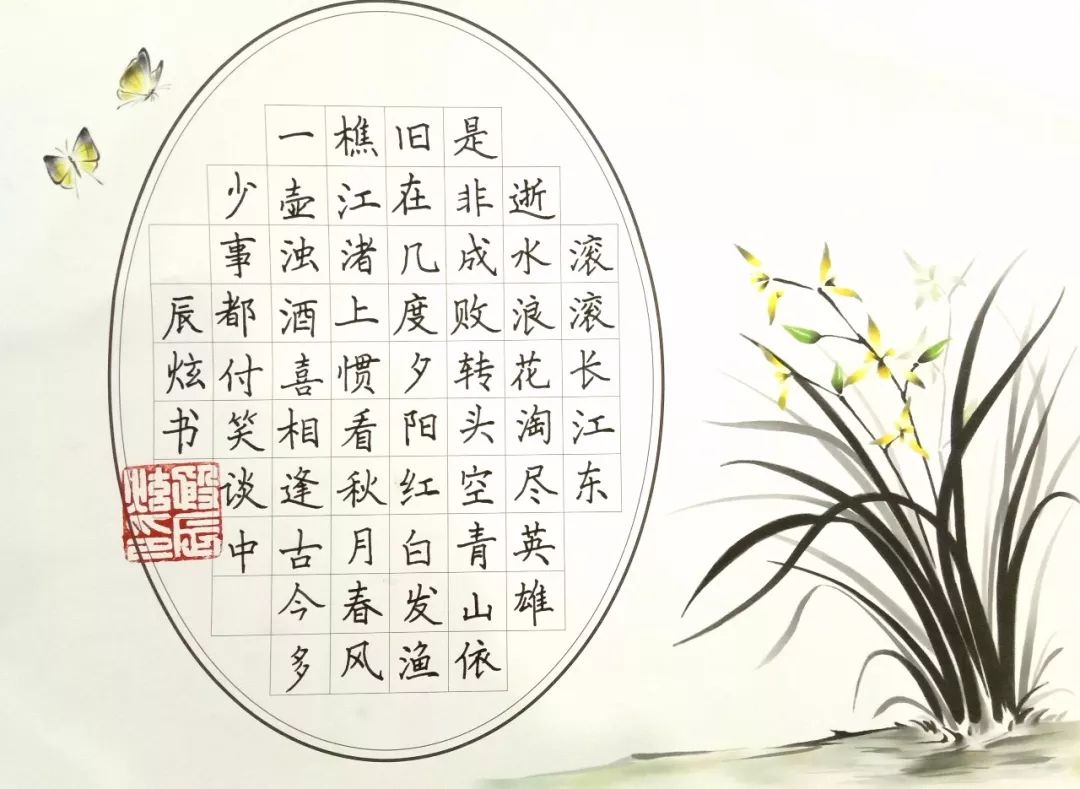 滚滚长江东
逝水浪花淘尽英雄
是非成败转头空青山依
旧在几度夕阳红白发渔
樵江渚上惯看秋月春风
一壶浊酒喜相逢古今多
少事都付笑谈中
辰炫书